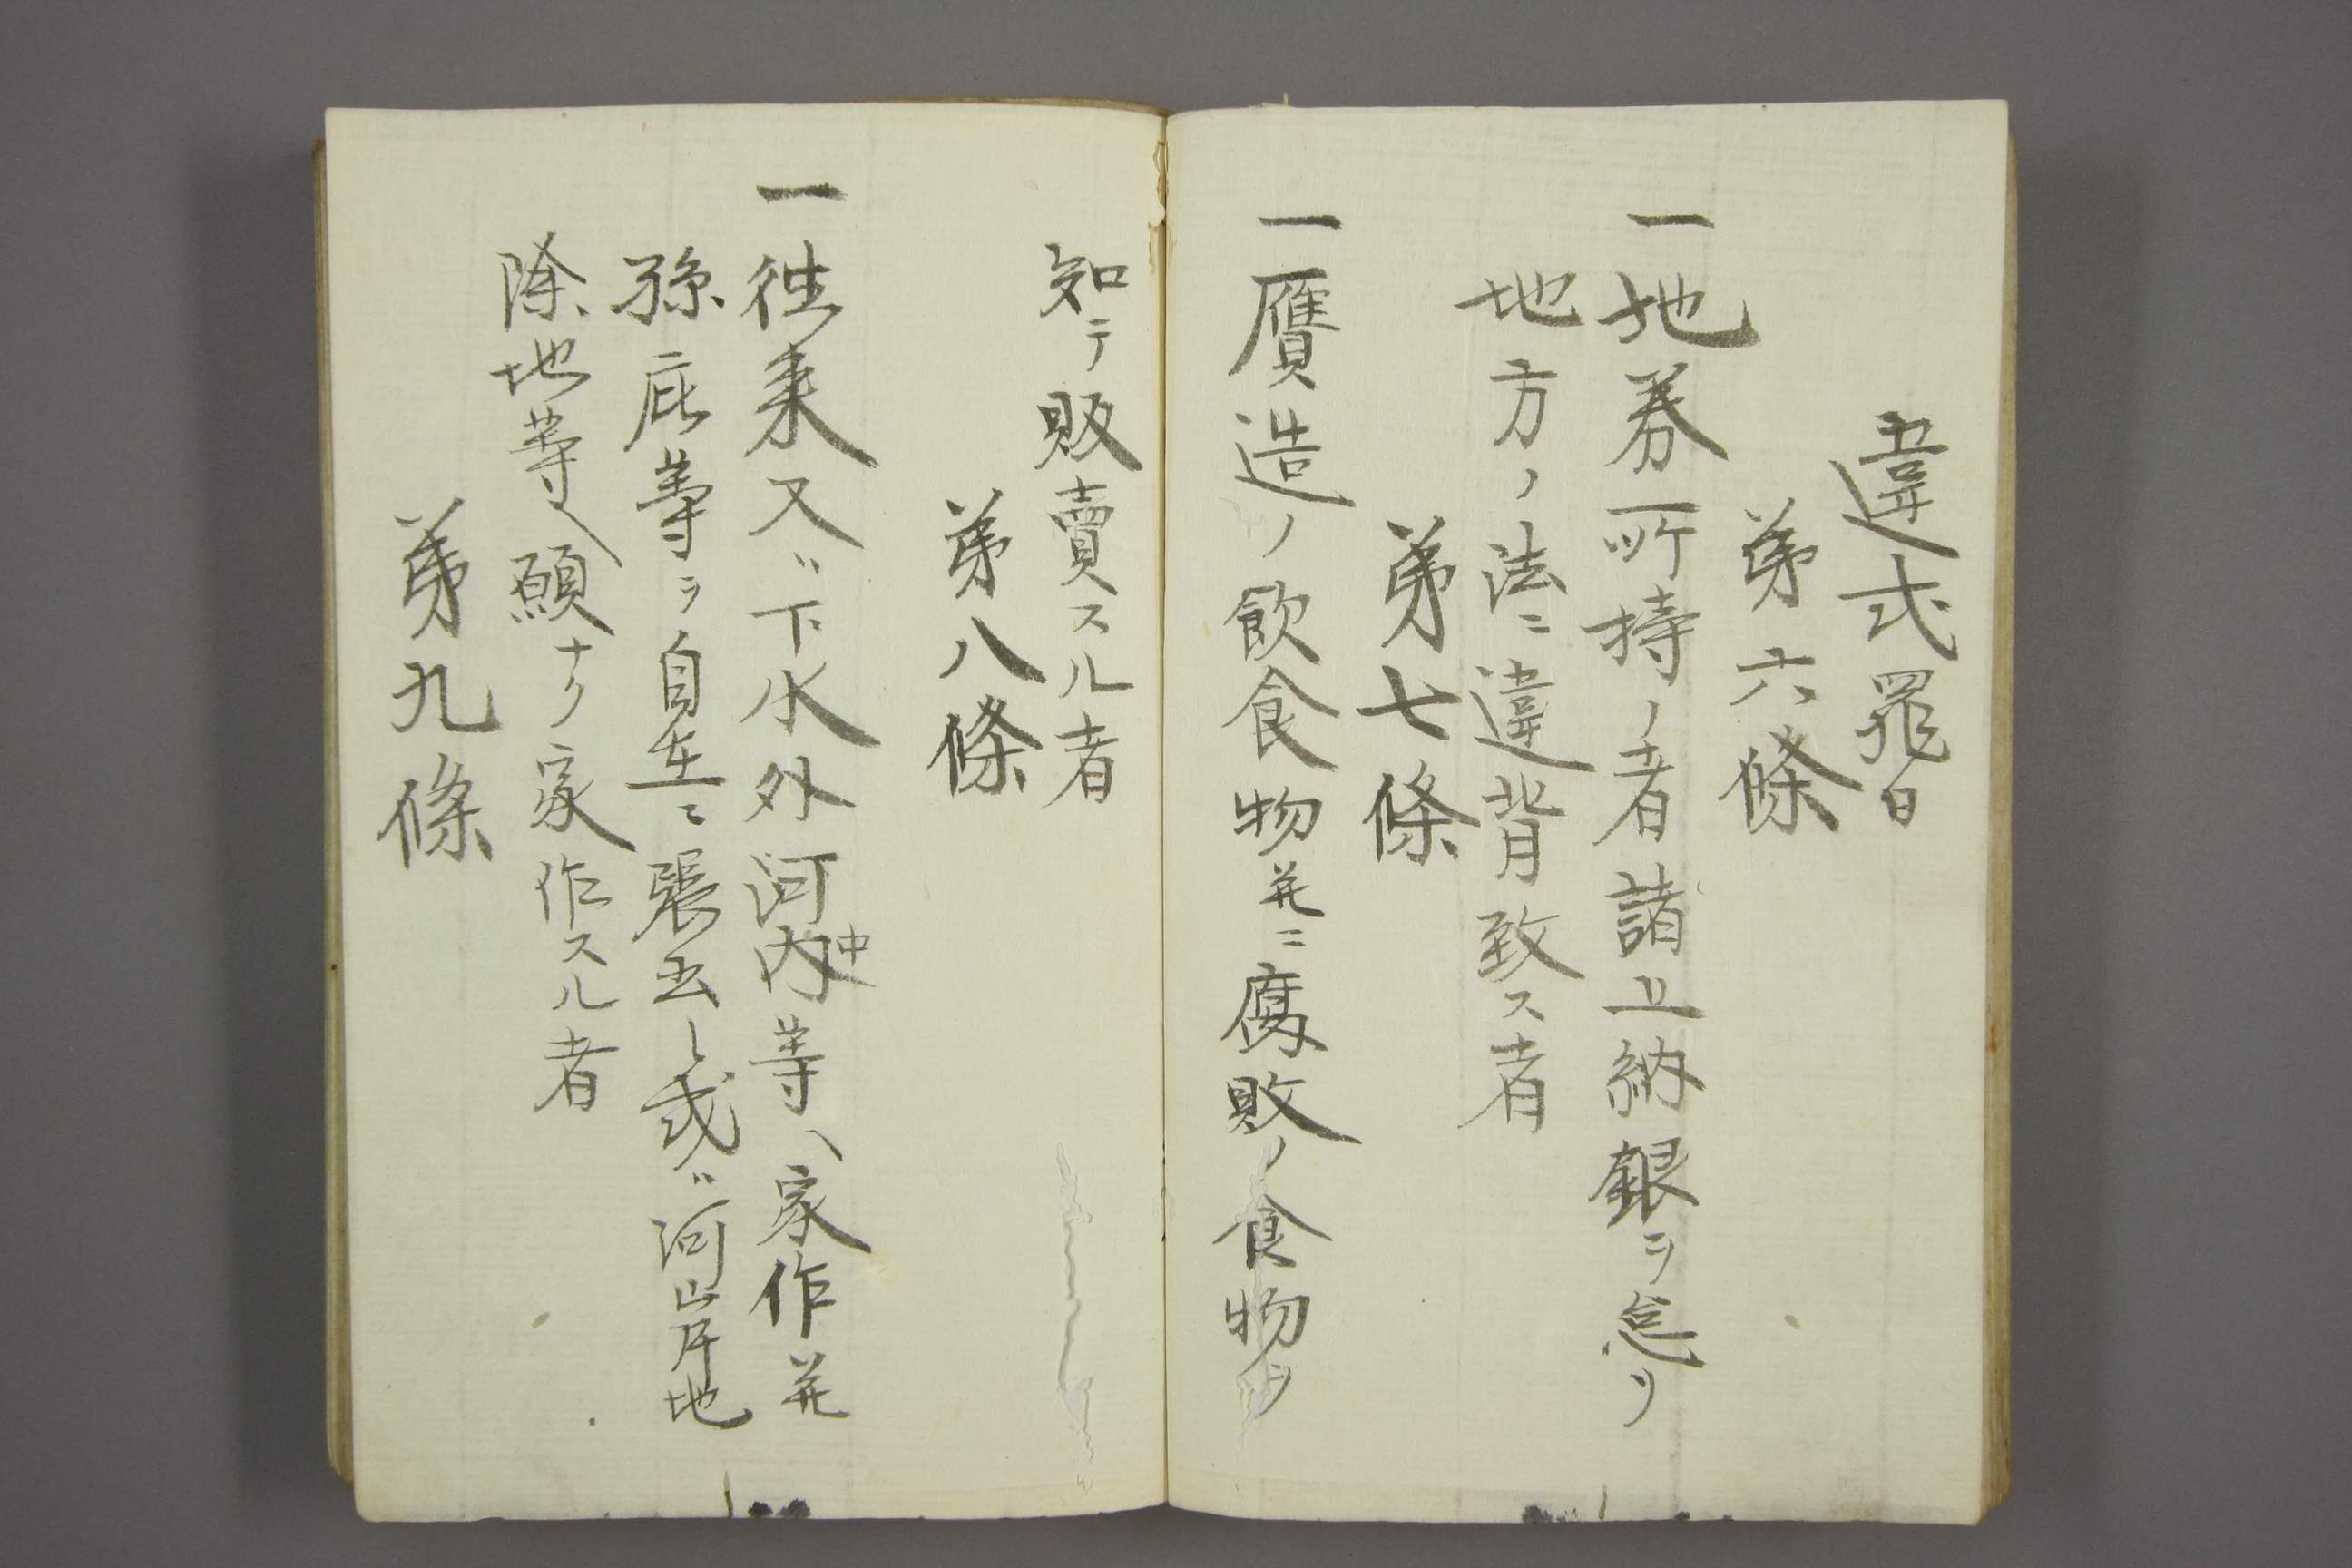 違式罪目
第六條
一地券所持ノ者諸上納銀ヲ怠リ
地方ノ法ニ違背致ス者
第七條
一贋造ノ飲食物并ニ腐敗ノ食物ヲ
知テ販賣スル者
第八條
一往来又ハ下水外河内中等ヘ家作并
孫庇等ヲ自在ニ張出シ或ハ河岸地
除地等ヘ願ナク家作スル者
第九條